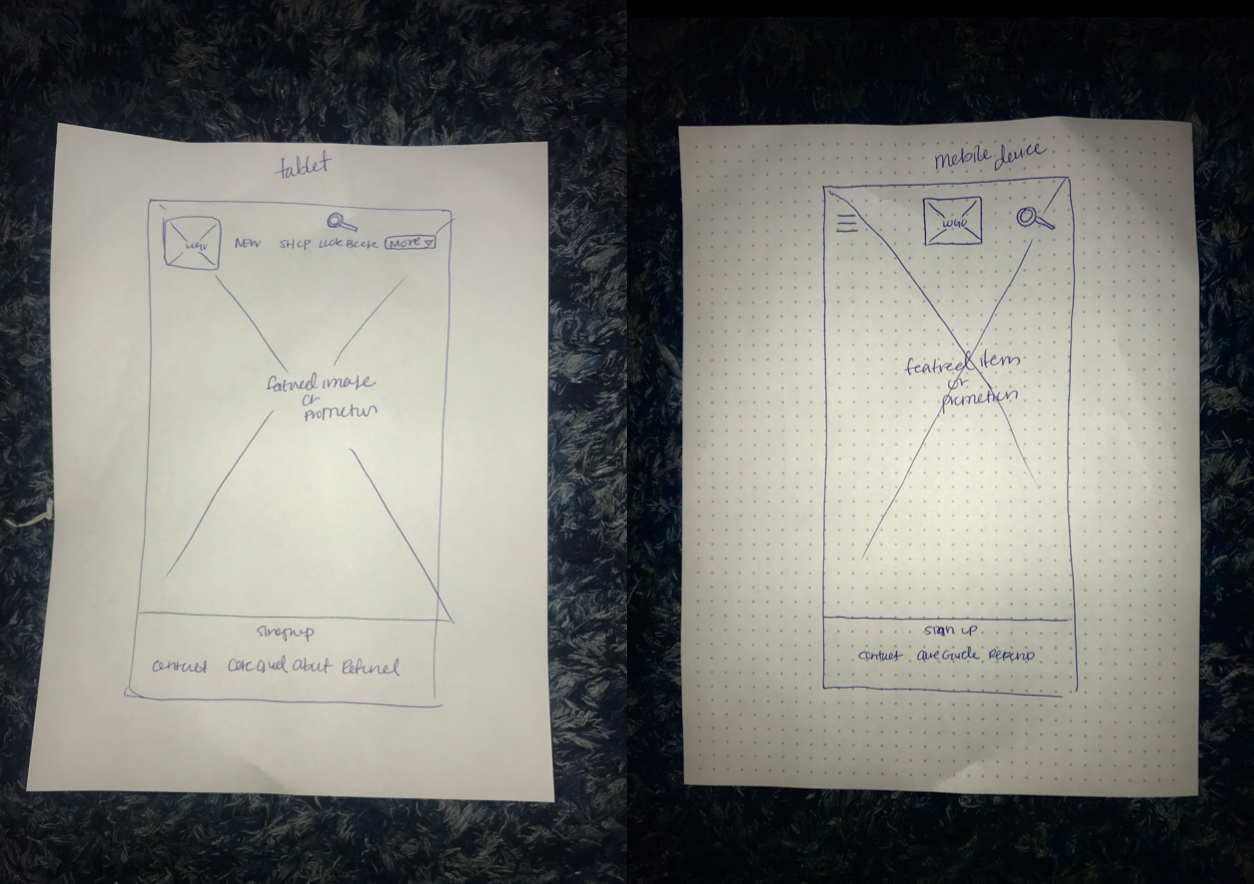 tablet
LOGO NEW SHOP LOOK BOOK MORE
featured image
or
promotion
contact about
mobile device
LOGO
featred item
or
promotion
sign up
contact Care Guide